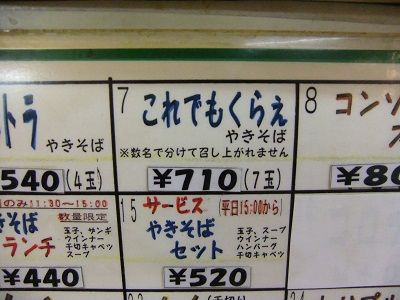 トラ
540 (4玉)
7 これでもくらえ
やきそば
※数名で分けて召し上がれません
¥710 (7玉)
8 コンソ
のみ11:30～15:00
数量限定
きそば
ランチ
玉子、ザンギ
ウインナー
千切キャベツ
スープ
¥440
15 サービス (平日15:00から)
やきそば
セット
玉子、スープ
ウインナー
ハンバーグ
千切キャベツ
¥520